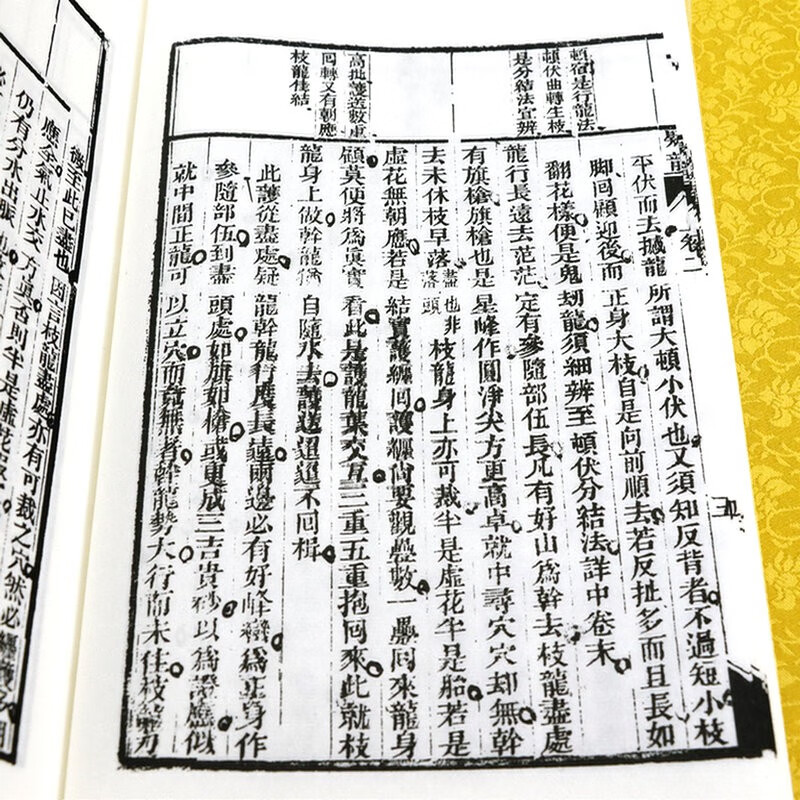 頓宿是行龍法
頓伏曲轉生枝
是分結法宜辨
高拋護送數重
回轉又有朝應
枝龍佳結
撼龍
卷一
平伏而去撼龍所謂大頓小伏也又須知反背者不過短小枝
脚回顧迎後而正身大枝自是向前順去若反扯多而且長如
翻花樣便是鬼劫龍須細辨至頓伏分結法詳中卷末
龍行長遠去茫茫定有參隨部伍長凡有好山為幹去枝龍盡處
有旗槍旗槍也是星峰作圓淨尖方更高卓就中尋穴穴却無幹
去未休枝早落落盡也非落頭枝龍身上亦可裁半是虛花半是胎若是
虛花無朝應若是結實護纏回護纏尚要觀疊數一疊回來龍身
顧莫便將為真實看此是護龍葉交互三重五重抱回來此就枝
龍身上做幹龍猶自隨水去護送迢迢不回楫
此護從盡處疑龍幹龍行度長遠兩邊必有好峰巒為正身作
參隨部伍到盡頭處如旗如槍或更成三吉貴砂以為證應似
就中間正龍可以立穴而竟無者幹龍勢大行而未住枝
後至此已盡也因言枝龍盡處亦有可裁之穴然必
應全氣止水交方真否則半是虛花
仍有分水出脈